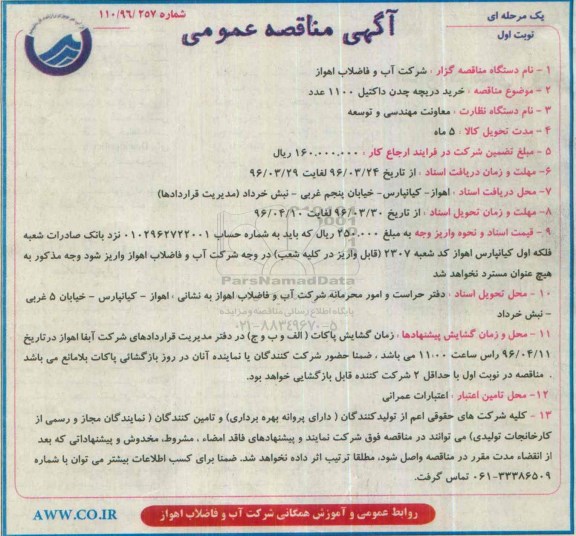 یک مرحله ای
نوبت اول
آگهی مناقصه عمومی
شماره ۱۱۰/۹۶/۲۵۷
۱ - نام دستگاه مناقصه گزار : شرکت آب و فاضلاب اهواز
۲ - موضوع مناقصه : خرید دریچه چدن داکتیل ۱۱۰۰ عدد
۳ - نام دستگاه نظارت : معاونت مهندسی و توسعه
۴ - مدت تحویل کالا : ۵ ماه
۵ - مبلغ تضمین شرکت در فرایند ارجاع کار : ۱۶۰.۰۰۰.۰۰۰ ریال
۶- مهلت و زمان دریافت اسناد : از تاریخ ۹۶/۰۳/۲۴ لغایت ۹۶/۰۳/۲۹
۷- محل دریافت اسناد : اهواز- کیانپارس- خیابان پنجم غربی - نبش خرداد (مدیریت قراردادها)
۸- مهلت و زمان تحویل اسناد : از تاریخ ۹۶/۰۳/۳۰ لغایت ۹۶/۰۴/۱۰
۹ - قیمت اسناد و نحوه واریز وجه به مبلغ ۲۵۰.۰۰۰ ریال که باید به شماره حساب ۰۱۰۲۹۶۲۷۲۲۰۰۱ نزد بانک صادرات شعبه
فلکه اول کیانپارس اهواز کد شعبه ۲۳۰۷ (قابل واریز در کلیه شعب) در وجه شرکت آب و فاضلاب اهواز واریز شود وجه مذکور به
هیچ عنوان مسترد نخواهد شد
۱۰ - محل تحویل اسناد : دفتر حراست و امور محرمانه شرکت آب و فاضلاب اهواز به نشانی : اهواز - کیانپارس - خیابان ۵ غربی
- نبش خرداد
۱۱ - محل و زمان گشایش پیشنهادها : زمان گشایش پاکات ( الف و ب و ج) در دفتر مدیریت قراردادهای شرکت آبفا اهواز درتاریخ
۹۶/۰۴/۱۱ راس ساعت ۱۱:۰۰ می باشد . ضمنا حضور شرکت کنندگان یا نماینده آنان در روز بازگشائی پاکات بلامانع می باشد
. مناقصه در نوبت اول با حداقل ۲ شرکت کننده قابل بازگشایی خواهد بود.
۱۲- محل تامین اعتبار : اعتبارات عمرانی
۱۳ - کلیه شرکت های حقوقی اعم از تولیدکنندگان ( دارای پروانه بهره برداری) و تامین کنندگان ( نمایندگان مجاز و رسمی از
کارخانجات تولیدی) می توانند در مناقصه فوق شرکت نمایند و پیشنهادهای فاقد امضاء ، مشروط، مخدوش و پیشنهاداتی که بعد
از انقضاء مدت مقرر در مناقصه واصل شود، مطلقا ترتیب اثر داده نخواهد شد. ضمنا برای کسب اطلاعات بیشتر می توان با شماره
۰۶۱-۳۳۳۸۶۵۰۹ تماس گرفت.
روابط عمومی و آموزش همگانی شرکت آب و فاضلاب اهواز
AWW.CO.IR
ParsNamadData
پایگاه اطلاع رسانی مناقصه و مزایده
۰۲۱-۸۸۳۴۹۶۷۰-۵